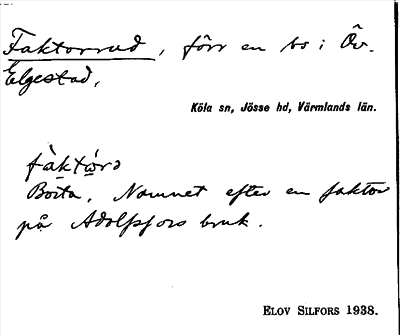 Faktorrud, förr en bs i Öv.
Elgestad,
Köla sn, Jösse hd, Värmlands län.
Borta. Namnet efter en faktor
på Adolfsfors bruk.
ELOV SILFORS 1938.